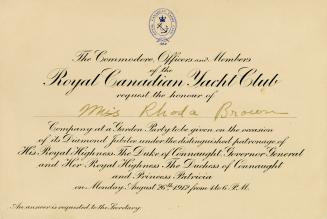 The Commodore, Officers and Members
of the
Royal Canadian Yacht Club
request the honour of
Miss Rhoda Brown
Company at a Garden Party to be given on the occasion
of its Diamond Jubilee under the distinguished patronage of
His Royal Highness, The Duke of Connaught, Governor General
and Her Royal Highness The Duchess of Connaught
and Princess Patricia
on Monday, August 26th 1912 from 4 to 6 P.M.
An answer is requested to the Secretary.